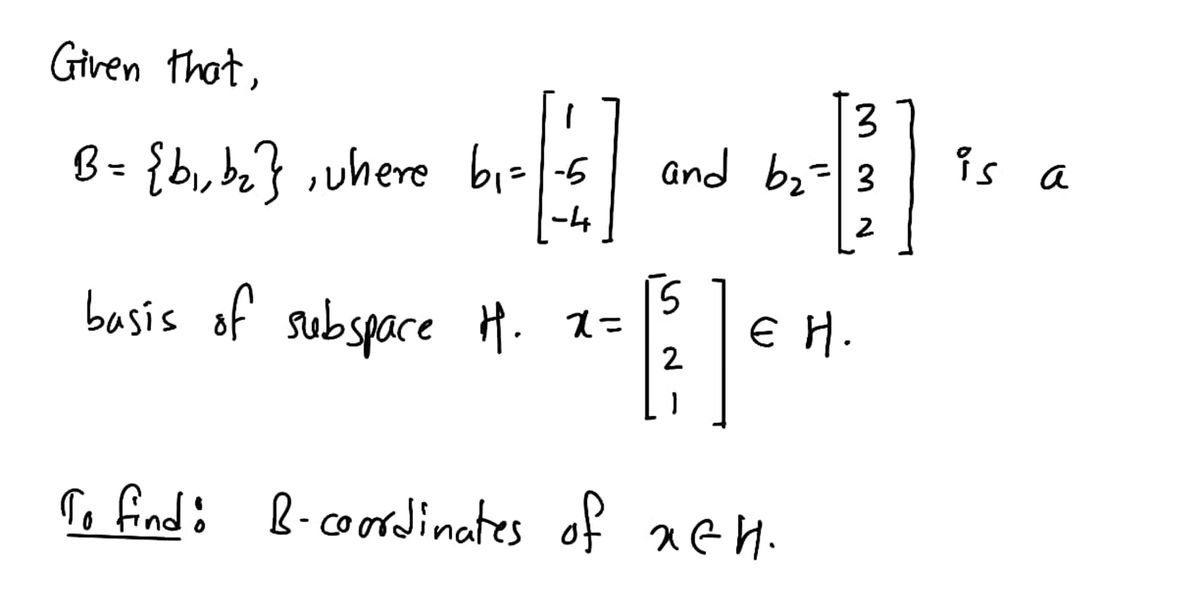 Given that,
B = {b₁, b₂}, where b₁ = [1 -5 -4] and b₂ = [3 3 2] is a
basis of subspace H. x = [5 2 1] ∈ H.
To find: B-coordinates of x ∈ H.